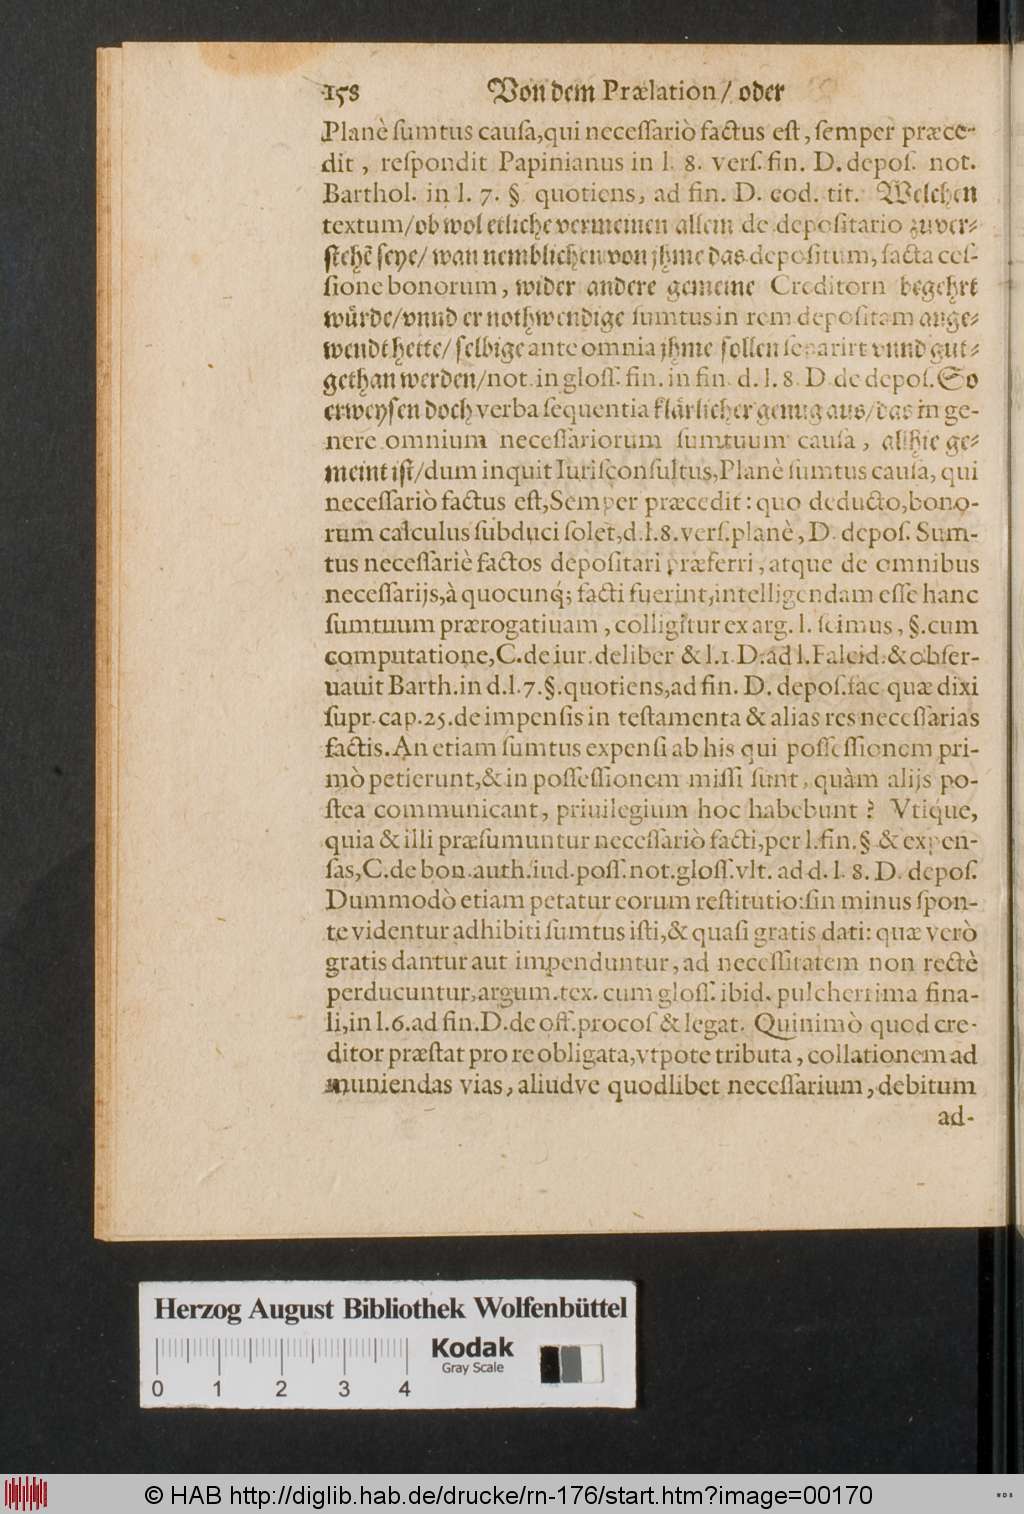 158 Von dem Prælation/ oder
Planè ſumtus cauſa,qui neceſſariò factus eſt, ſemper præce-
dit, reſpondit Papinianus in l. 8. verſ. fin. D. depoſ. not.
Barthol. in l. 7. § quotiens, ad fin. D. eod. tit. Welchen
textum/ob wol etliche vermeinen allein de depoſitario zuver-
ſtehẽ ſeye/ wan nemblichen von jhme das depoſitum, facta ceſ-
ſione bonorum, wider andere gemeine Creditorn begehrt
würde/vnnd er nothwendige ſumtus in rem depoſitam ange-
wendt hette/ ſelbige ante omnia jhme ſollen ſeparirt vnnd gut-
gethan werden/not. in gloſſ. fin. in fin. d. l. 8. D. de depoſ. So
erweyſen doch verba ſequentia klärlicher genug aus/das in ge-
nere omnium neceſſariorum ſumtuum cauſa, allhie ge-
meint iſt/dum inquit Iuriſconſultus,Planè ſumtus cauſa, qui
neceſſariò factus eſt,Semper præcedit: quo deducto,bono-
rum calculus ſubduci ſolet,d.l.8.verſ.planè, D. depoſ. Sum-
tus neceſſariè factos depoſitari præferri, atque de omnibus
neceſſarijs,à quocunq́; facti fuerint,intelligendam eſſe hanc
ſumtuum prærogatiuam, colligitur ex arg. l. ſcimus, §. cum
computatione,C.de iur.deliber & l.1.D.ad l.Falcid.& obſer-
uauit Barth.in d.l.7.§.quotiens,ad fin. D. depoſ.fac quæ dixi
ſupr.cap.25.de impenſis in teſtamenta & alias res neceſſarias
factis. An etiam ſumtus expenſi ab his qui poſſeſſionem pri-
mò petierunt,& in poſſeſſionem miſſi ſunt, quàm alijs po-
ſtea communicant, priuilegium hoc habebunt? Vtique,
quia & illi præſumuntur neceſſariò facti,per l.fin.§ & expen-
ſas,C.de bon.auth.iud.poſſ.not.gloſſ.vlt. ad d. l. 8. D. depoſ.
Dummodò etiam petatur eorum reſtitutio:ſin minus ſpon-
te videntur adhibiti ſumtus iſti,& quaſi gratis dati: quæ verò
gratis dantur aut impenduntur, ad neceſſitatem non rectè
perducuntur,argum.tex. cum gloſſ. ibid. pulcherrima fina-
li,in l.6.ad fin.D.de off.procoſ & legat. Quinimò quod cre-
ditor præſtat pro re obligata,vtpote tributa, collationem ad
muniendas vias, aliudve quodlibet neceſſarium, debitum
ad-
Herzog August Bibliothek Wolfenbüttel
Kodak
Gray Scale
0 1 2 3 4
© HAB http://diglib.hab.de/drucke/rn-176/start.htm?image=00170